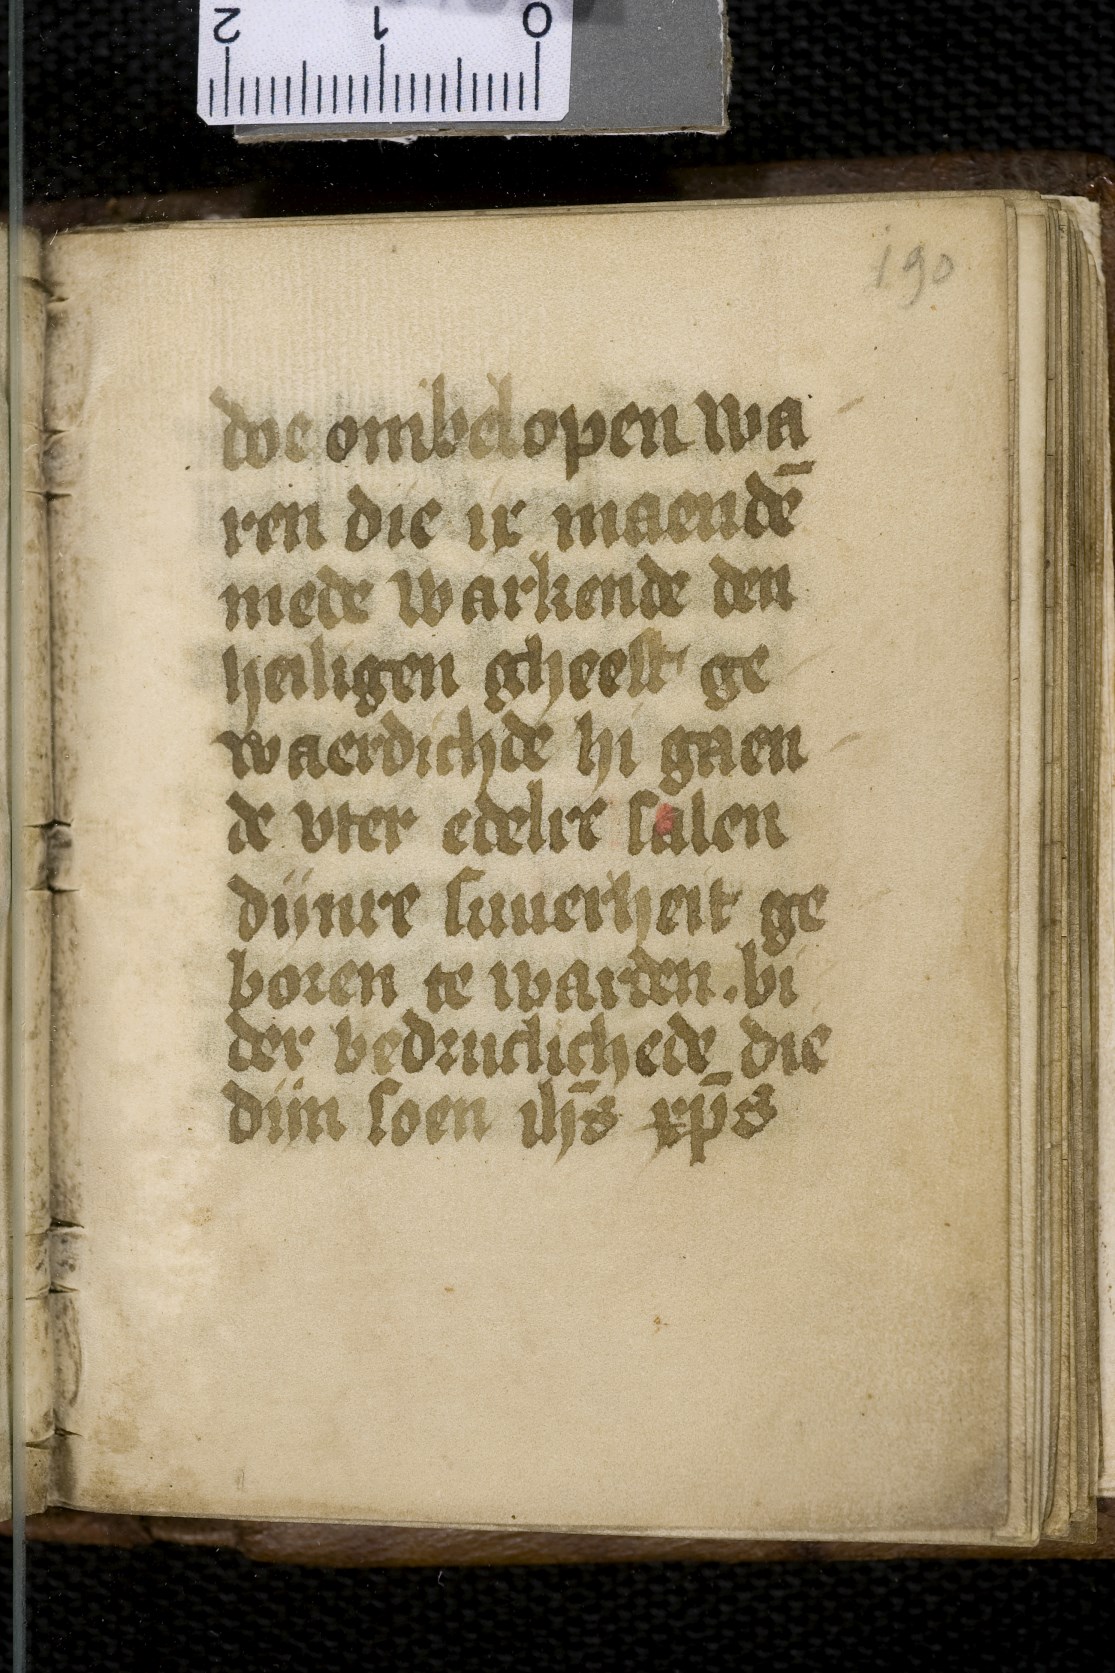 2 1 0
190
doe ombelopen wa
ren die ix maendē
mede warkende den
heiligen gheest ge
waerdichde hi gaen
de vter edelre salen
dijnre suuerheit ge
boren te warden. bi
der bedructichede die
dijn soen ihs̄ xp̄s